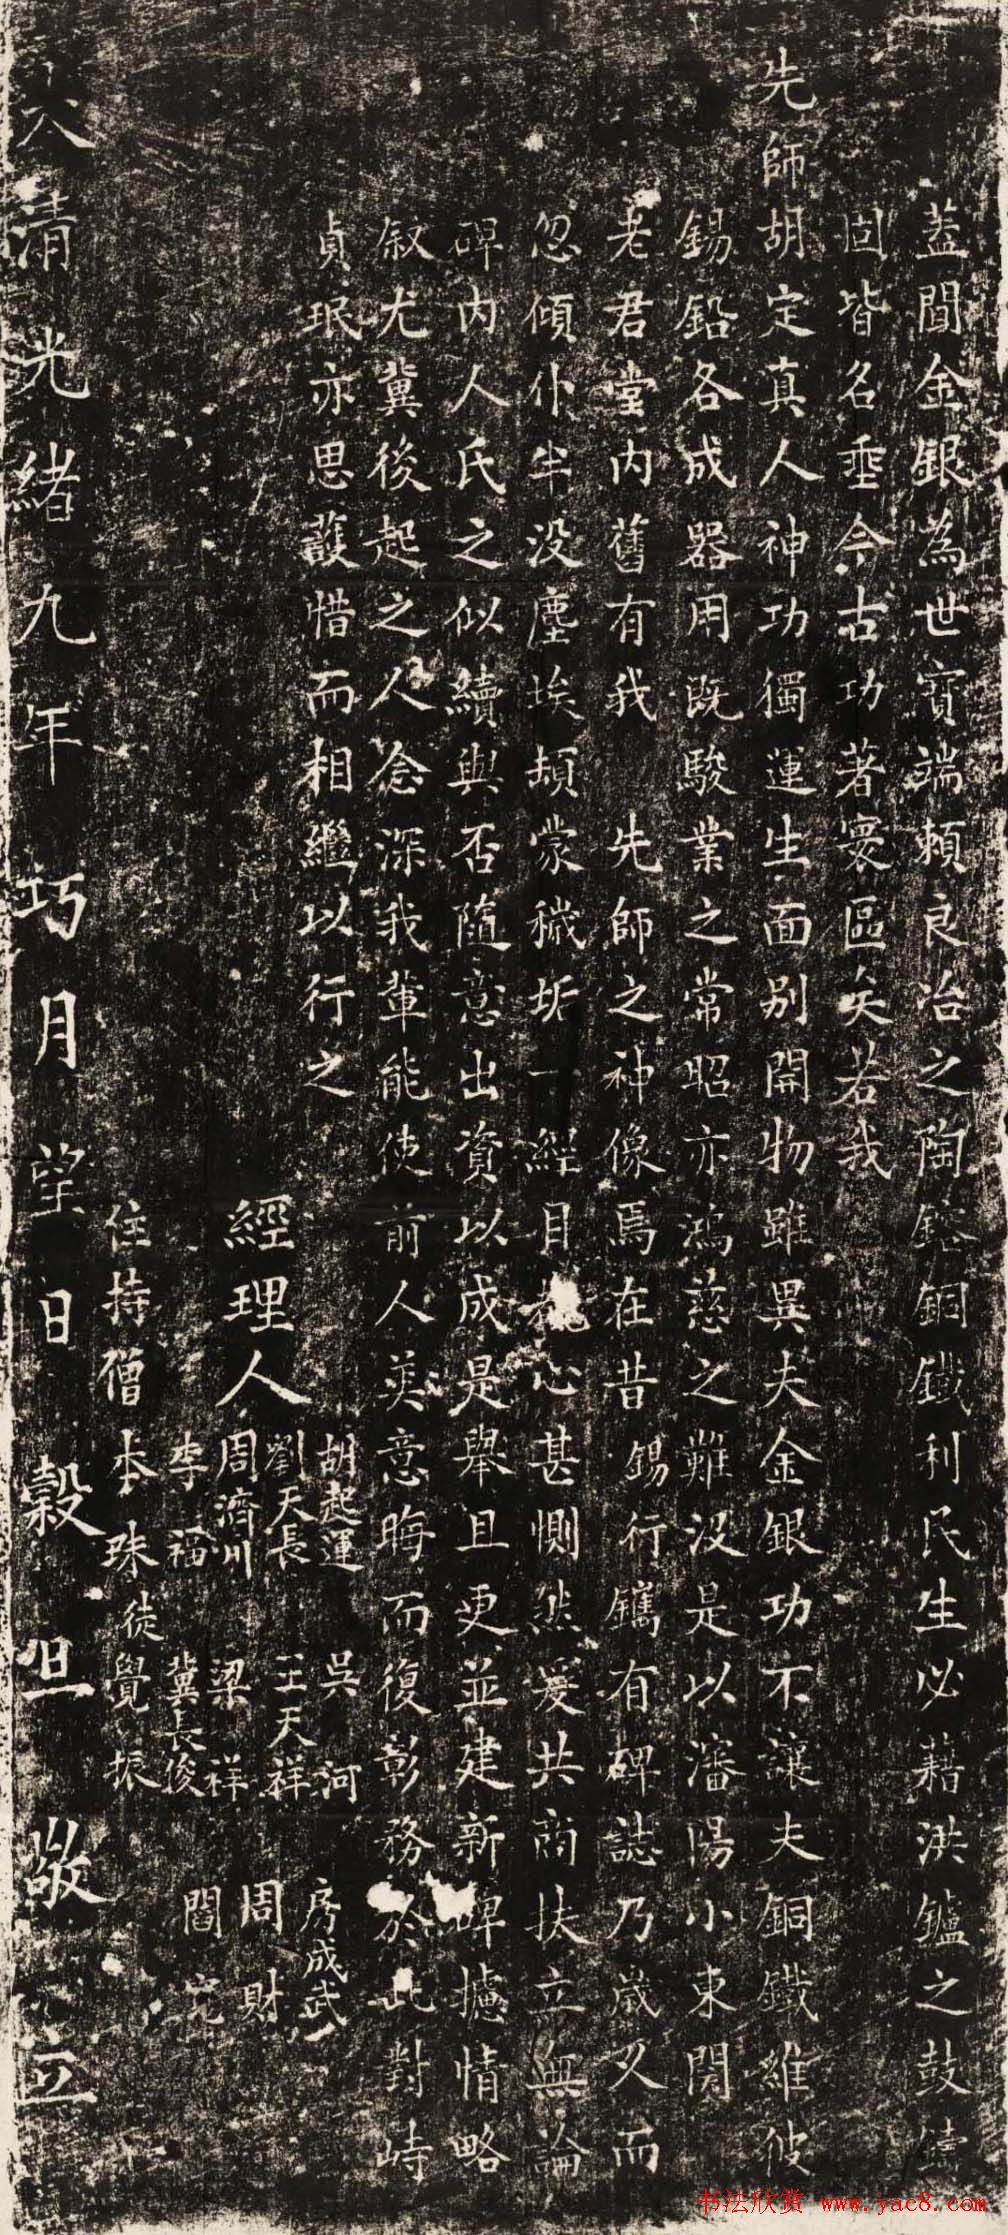 蓋聞金銀為世寶端賴良冶之陶鎔銅鐵利民生必藉洪鑪之鼓鑄
固皆名垂今古功著寰區矣若我
先師胡定真人神功獨運生面別開物雖異夫金銀功不讓夫銅鐵維彼
錫鉛各成器用既駿業之常昭亦鴻慈之難沒是以瀋陽小東関
老君堂內舊有我 先師之神像焉在昔錫行鐫有碑誌乃歲久而
忽傾仆半没塵埃頻蒙穢垢一經目 心甚惻然爰共商扶立無論
碑內人氏之似續與否隨意出資以成是舉且更並建新碑攄情略
叙尤冀後起之人念深我輩能使前人美意晦而復彰務於此對峙
貞珉亦思護惜而相繼以行之
經理人
胡起運 吳河 房成武
劉天長 王天祥 周財
周濟川 梁祥 閻
李福 冀長俊
住持僧本珠徒覺振
大清光緒九年巧月望日穀旦敬立
书法欣赏 www.yac8.com